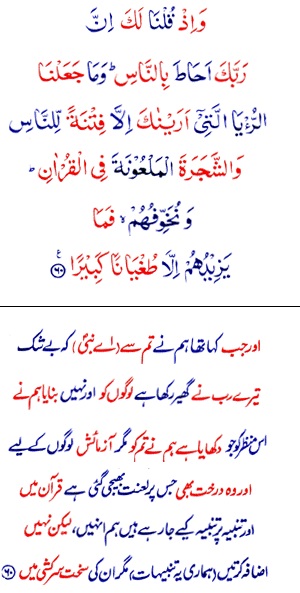 وَاِذْ قُلْنَا لَكَ اِنَّ
رَبَّكَ اَحَاطَ بِالنَّاسِ ؕ وَمَا جَعَلْنَا
الرُّءْيَا الَّتِىْٓ اَرَيْنٰكَ اِلَّا فِتْنَةً لِّلنَّاسِ
وَالشَّجَرَةَ الْمَلْعُوْنَةَ فِى الْقُرْاٰنِ ؕ
وَنُخَوِّفُهُمْ ۙ فَمَا
يَزِيْدُهُمْ اِلَّا طُغْيَانًا كَبِيْرًا ﴿۶۰﴾ ع
اور جب کہا تھا ہم نے تم سے (اے نبیؐ) کہ بے شک
تیرے رب نے گھیر رکھا ہے لوگوں کو اور نہیں بنایا ہم نے
اس منظر کو جو دکھایا ہے ہم نے تم کو مگر آزمائش لوگوں کے لیے
اور وہ درخت بھی جس پر لعنت بھیجی گئی ہے قرآن میں
اور تنبیہ پر تنبیہ کیے جا رہے ہیں ہم انہیں، لیکن نہیں
اضافہ کرتیں (ہماری یہ تنبیہات) مگر ان کی سخت سرکشی میں ﴿۶۰﴾